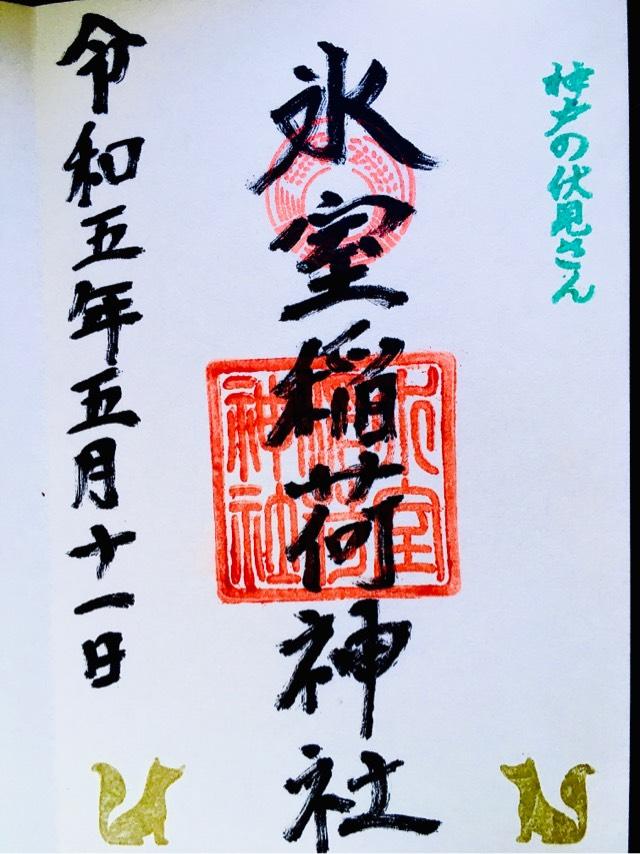 神戸の伏見さん
氷室稲荷神社
氷室
稲荷
神社
令和五年五月十一日